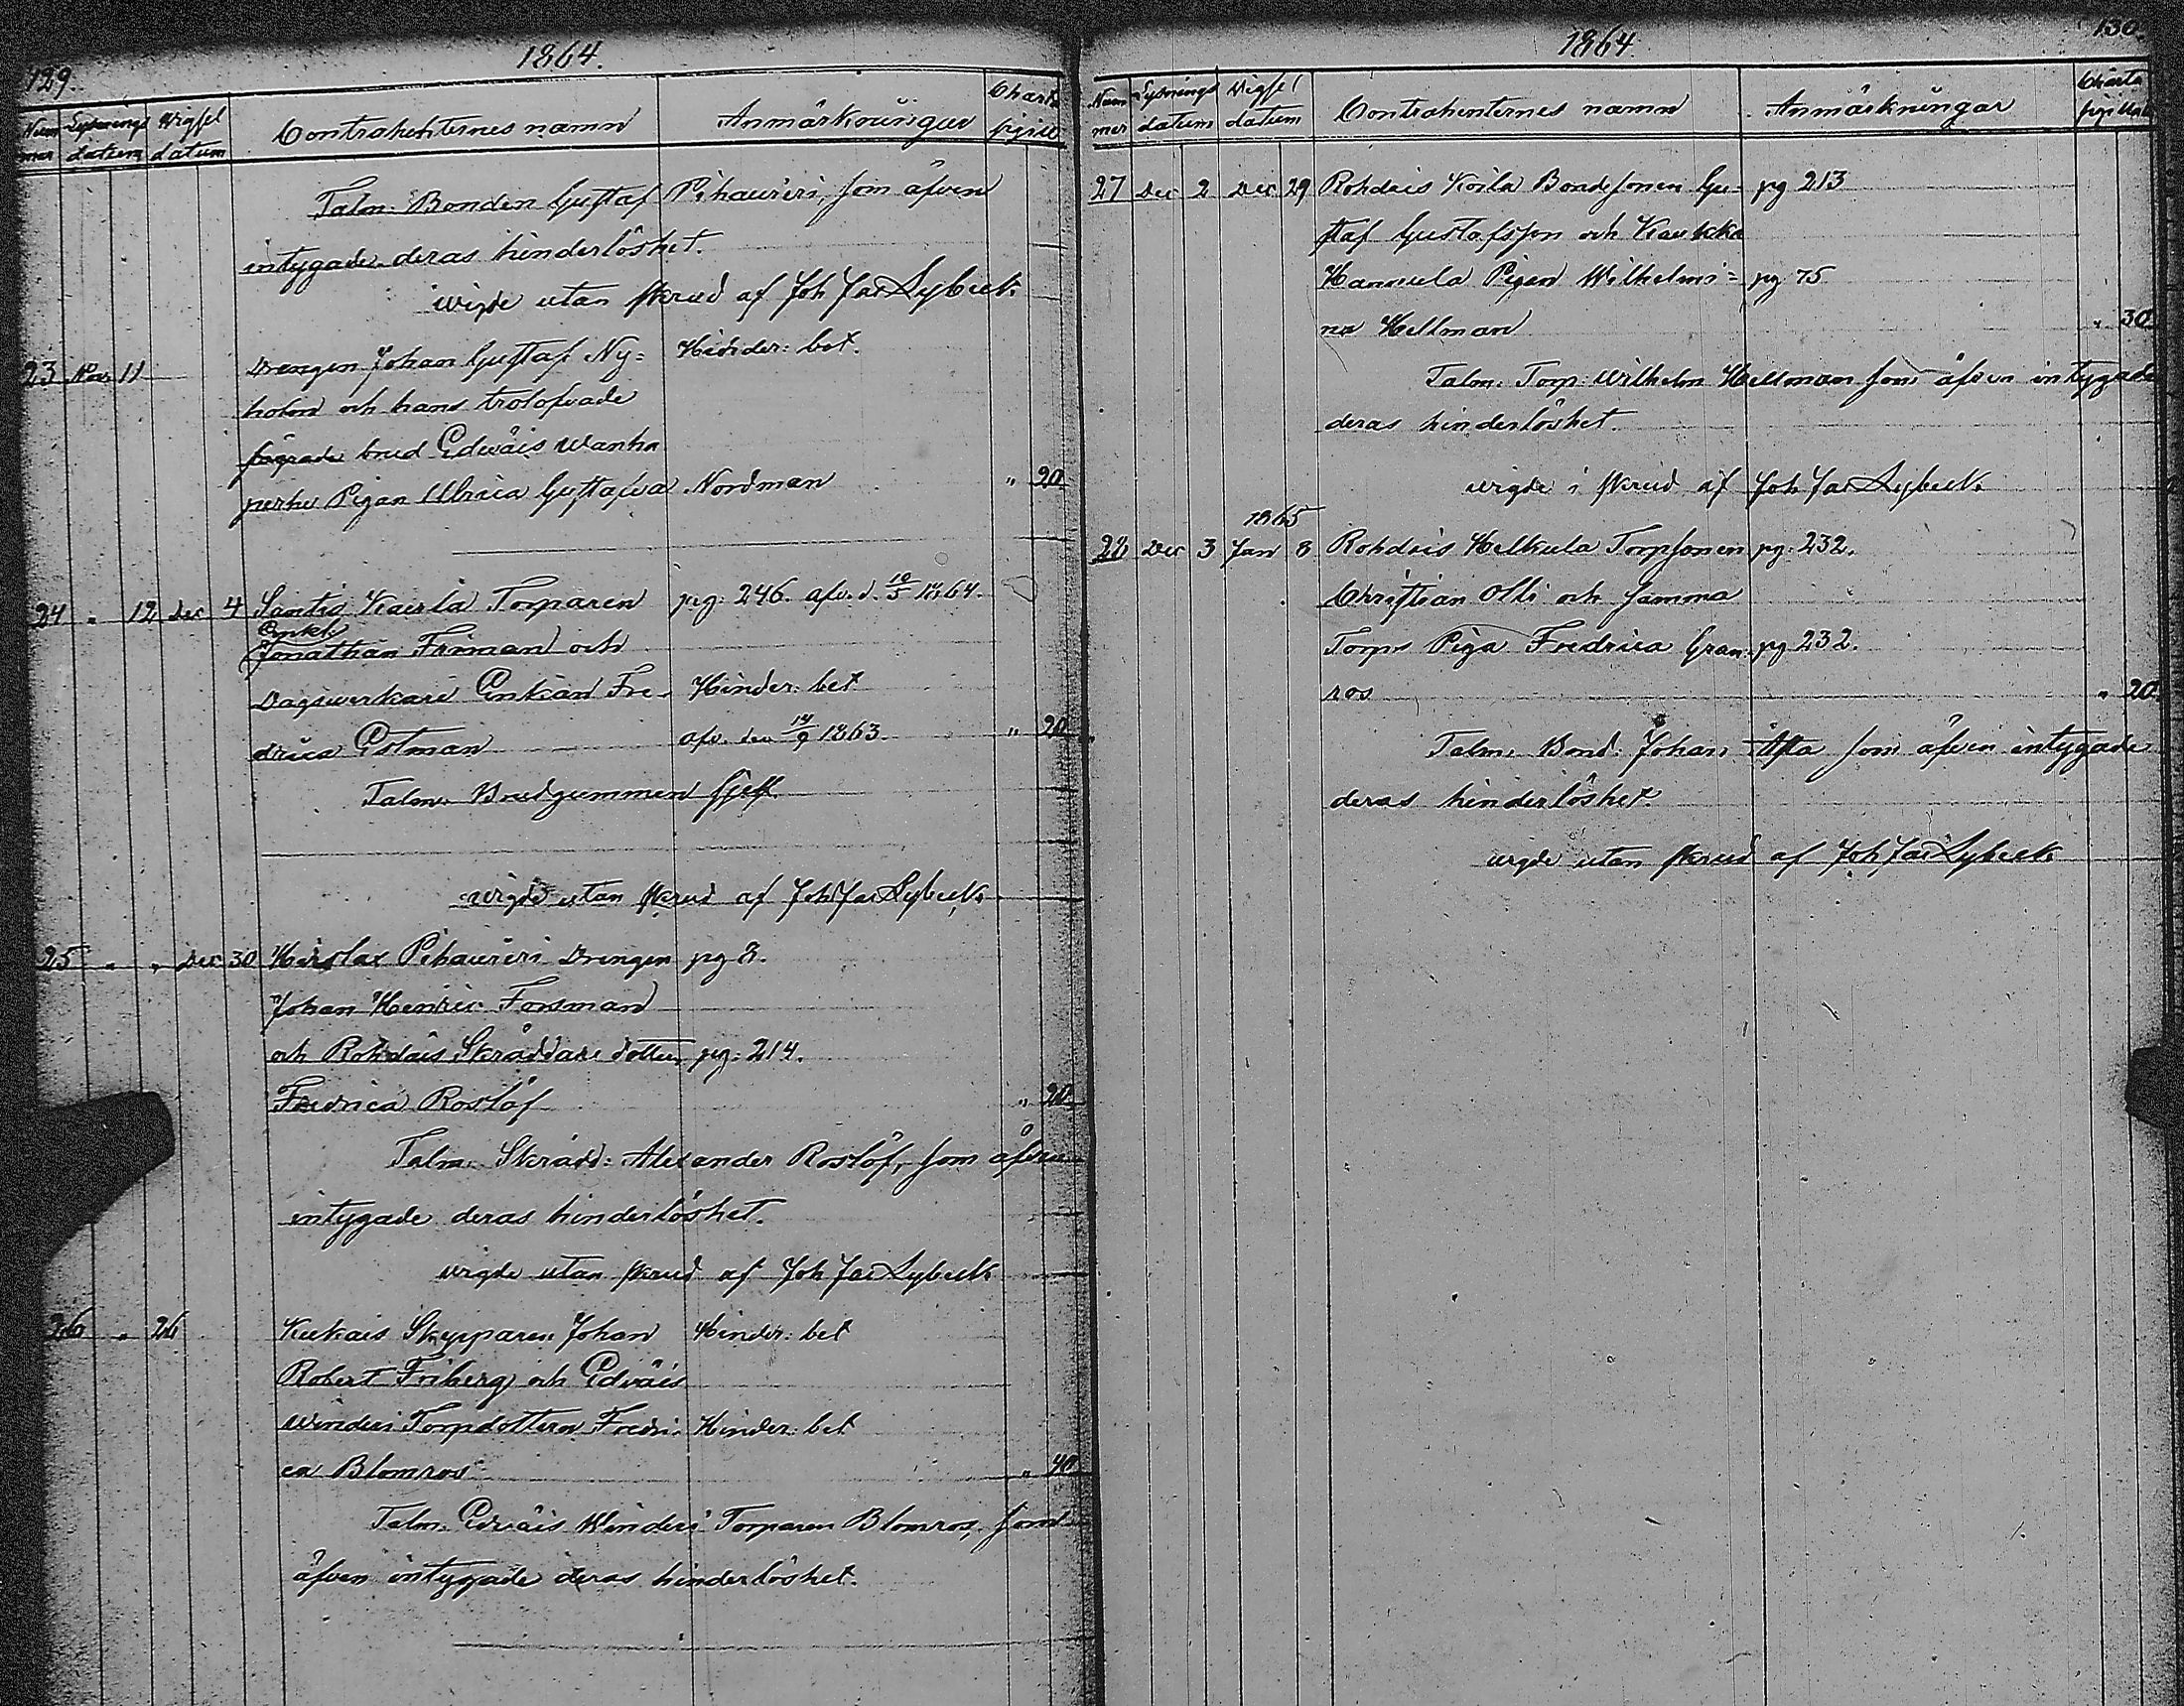 129.
1864.
Nummer Lysnings datum Wigsel datum Contrahenternes namn Anmärkningar Charta sigill.
Talm: Bonden Gustaf Pihaureri, som äfven
intygade deras hinderlöshet.
wigde utan skrud af Joh Jac Lybeck.
23 Nov. 11 Drengen Johan Gustaf Ny= Hinder: bet.
holm och hans trolofvade
brud Edväis Wanha
perhe Pigan Ulrica Gustafva Nordman " 20
24 " 12 Dec 4 Santis Kaerla Torparen pag: 246. afv. d. 10/5 1864.
Enkl.
Jonathan Friman och
Dagsverkare Enkan Fre- Hinder: bet
drica Östman afv. den 14/9 1863. " 20
Talm. Brudgummen sjelf.
wigde utan skrud af Joh Jac Lybeck.
25 " " Dec 30 Hirslax Pihaureri Drengen pg 8.
Johan Henric Forsman
och Rohdais Skräddare dotter, pg: 214.
Fredrica Roslöf " 20
Talm. Skrädd: Alexander Roslöf, som äfven
intygade deras hinderlöshet.
wigde utan skrud af Joh Jac Lybeck.
26 " 26 Kukais Skepparen Johan Hinder: bet
Robert Friberg och Edväis
Winderi Torpdottern Fredri Hinder: bet
ca Blomros " 40
Talm. Edväis Winderi Torparen Blomros, som
äfven intygade deras hinderlöshet.
130.
1864.
Nummer Lysnings datum Vigsel datum Contrahenternes namn Anmärkningar Charta sigillat
27 Dec 2 Dec 29 Rohdais Koila Bondesonen Gu= pg 213
staf Gustafsson och Kaukka
Hannula Pigan Wilhelmi= pg 75
na Hellman " 30
Talm. Torp: Wilhelm Hellman som äfven intygade
deras hinderlöshet.
wigde i skrud af Joh Jac Lybeck.
1865
28 Dec 3 Jan 8 Rohdais Helkula Torpsonen pg: 232.
Christian Olli och samma
Torps Piga Fredrica Gran= pg 232.
ros " 20
Talm. Bond: Johan som äfven intygade
deras hinderlöshet.
wigde utan skrud af Joh Jac Lybeck.